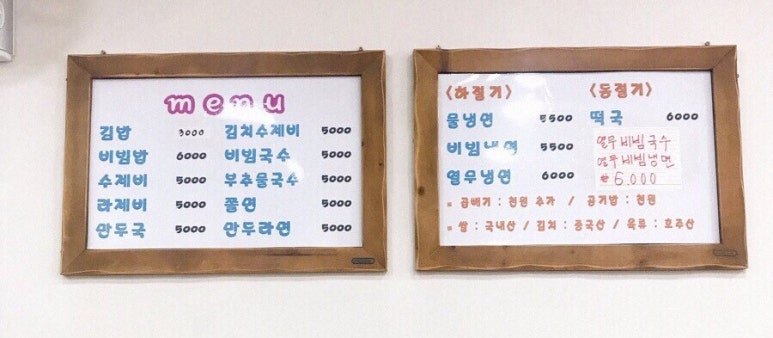 menu
김밥 3000 김치수제비 5000
비빔밥 6000 비빔국수 5000
수제비 5000 부추물국수 5000
라제비 5000 쫄면 5000
만두국 5000 만두라면 5000
<하절기> <동절기>
물냉면 5500 떡국 6000
비빔냉면 5500
열무냉면 6000
열무비빔국수
열무비빔냉면
₩6.000
※ 곱배기 : 천원 추가 / 공기밥 : 천원
※ 쌀 : 국내산 / 김치 : 중국산 / 육류 : 호주산